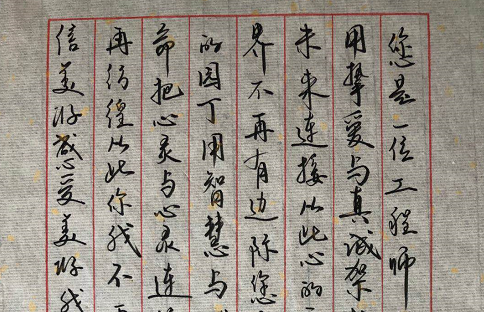 您是一位工程师
用挚爱与真诚架
未来连接从此心的
界不再有边际您
的园丁用智慧与
命把心灵与心灵连
再彷徨从此你我不
信美好感受美好我